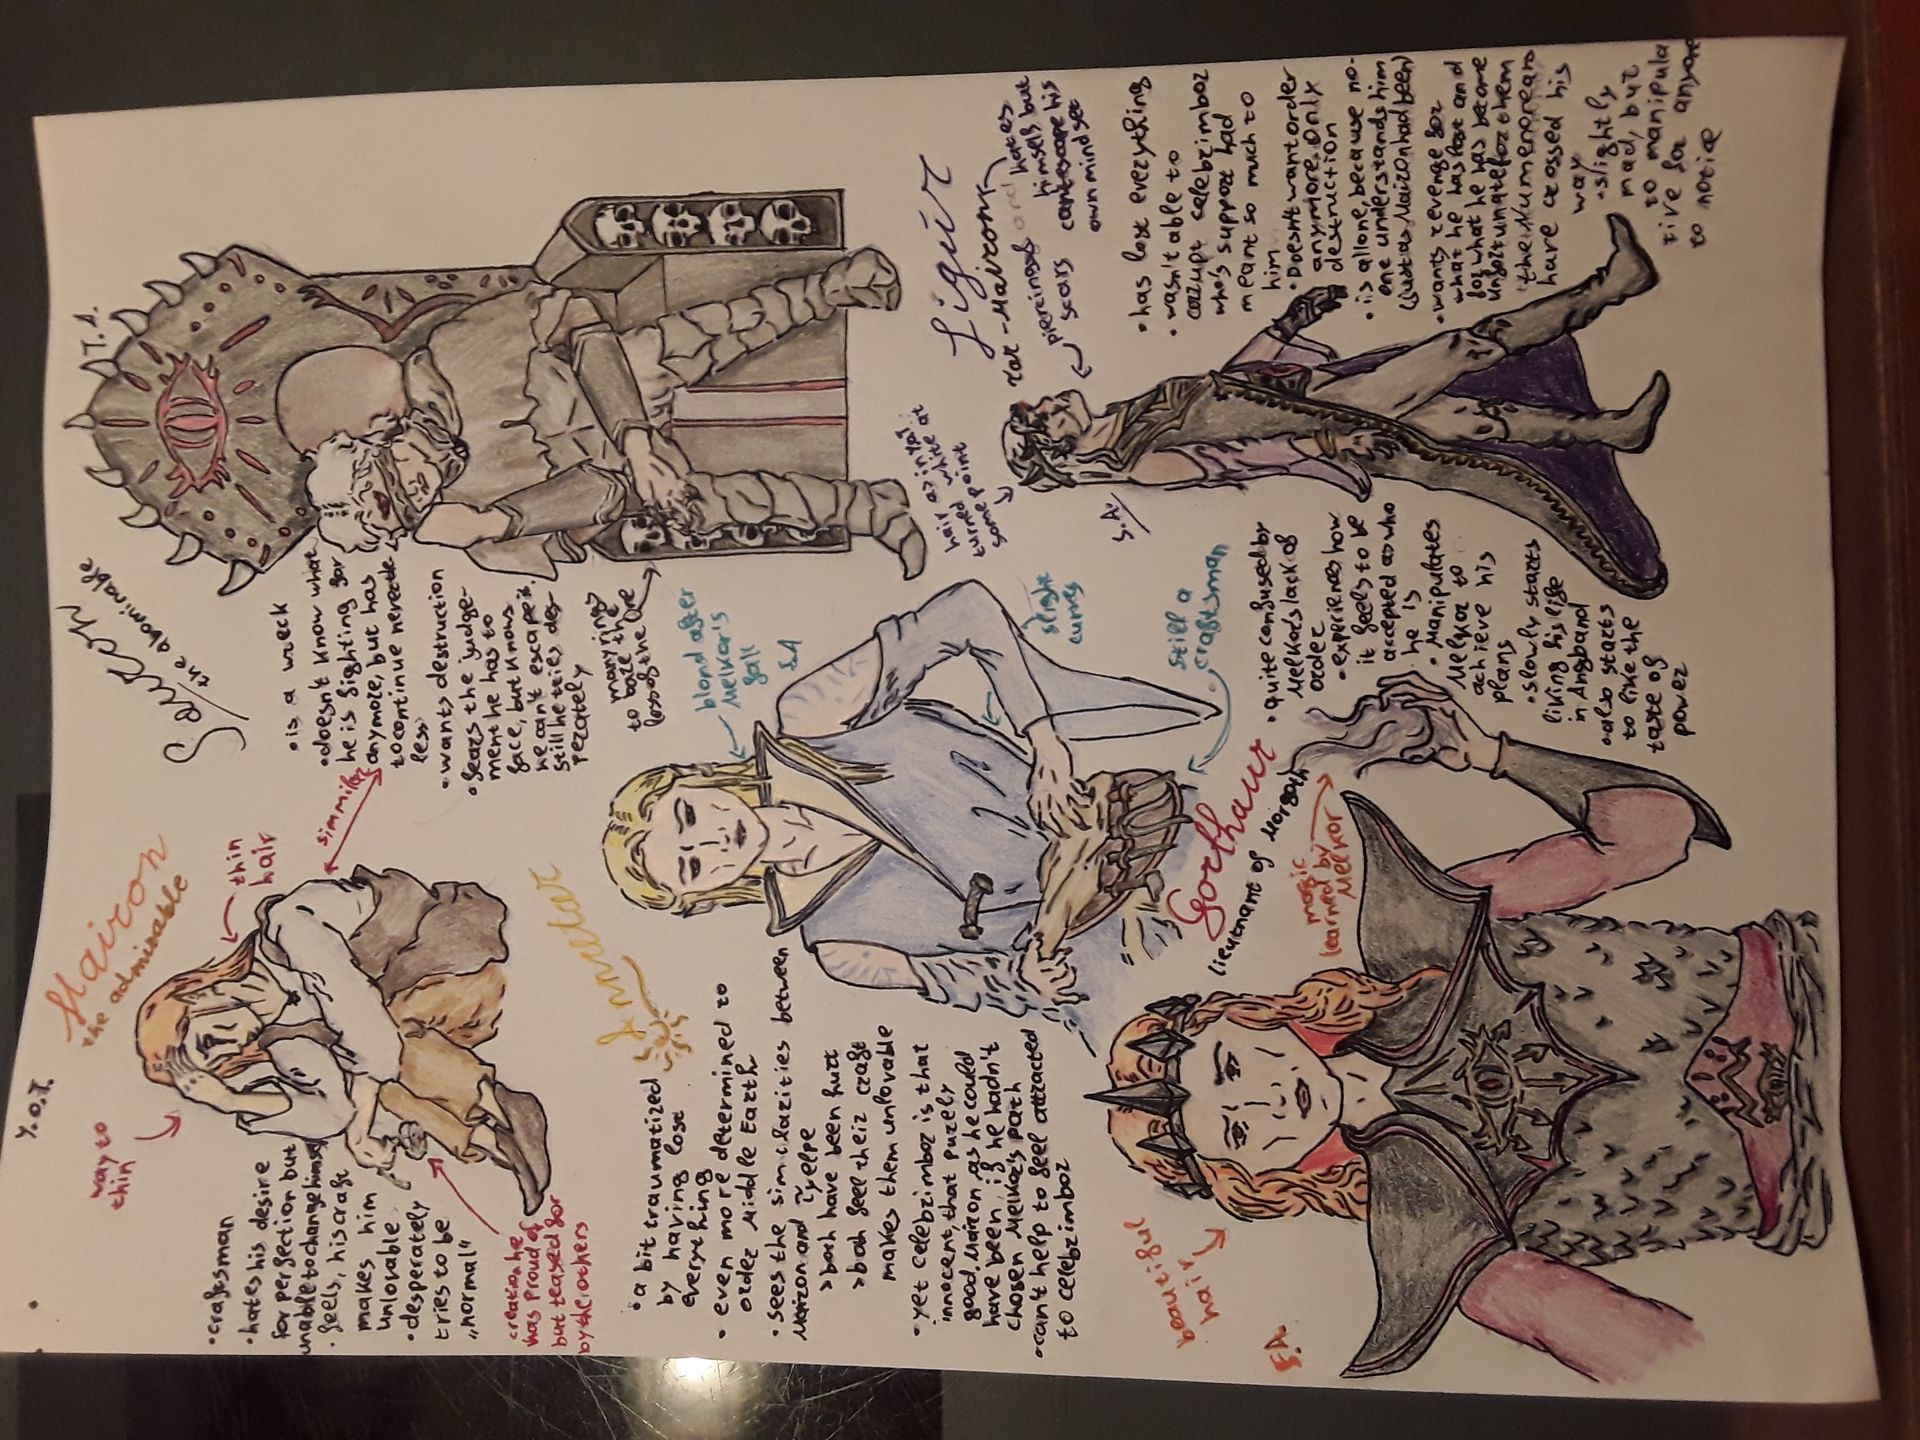 Y.O.T.
Mairon
the admirable
way to
thin
thin
hair
simmilar
• craftsman
• hates his desire
for perfection but
unable to change himself
• feels, his craft
makes him
unlovable
• desperately
tries to be
„normal"
creation he
was proud of
but teased for
by the others
Sauron
the abominable
T.A.
• is a wreck
• doesn't know what
he is fighting for
anymore, but has
to continue neverthe-
less
• wants destruction
• fears the judge-
ment he has to
face, but knows
he can't escape it.
still he tries des-
perately
many rings
to balance the
loss of the one
Annatar
blond after
Melkor's
fall
S.A
slight
curves
still a
craftsman
• a bit traumatized
by having lost
everything
• even more determined to
order Middle Earth
• sees the similarities between
Mairon and Tyelpe
> both have been hurt
> both feel their craft
makes them unlovable
• yet celebrimbor is that
innocent, that purely
good, Mairon as he could
have been, if he hadn't
chosen Melkor's path
• can't help to feel attracted
to celebrimbor
Zigûr
Tar-Mairon
hair as in YoT.
turned white at
some point
piercings and
scars
hates
himself but
can't escape his
own mindset
S.A.
• has lost everything
• wasn't able to
corrupt celebrimbor
who's support had
meant so much to
him
• Doesn't want order
anymore. only
destruction
• is allone, because no-
one understands him
(just as Mairon had been)
• wants revenge for
what he has lost and
for what he has become
unfortunate for them
the Numenoreans
have crossed his
way
• slightly
mad, but
to manipula
tive for anyone
to notice
Gorthaur
lieutnant of Morgoth
magic
learned by
Melkor
beautiful
hair
F.A.
• quite confused by
Melkors lack of
order
• experiences how
it feels to be
accepted as who
he is
• Manipulates
Melkor to
achieve his
plans
• slowly starts
living his life
in Angband
• also starts
to like the
taste of
power